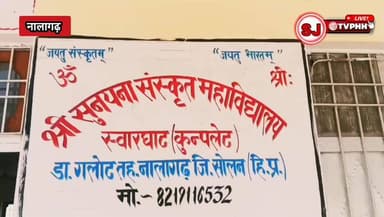 नालागढ़
SJ
LIVE!
TVPHH
"जयतु संस्कृतम्" "जयतु भारतम्"
ॐ श्री:
श्री सुनयना संस्कृत महाविद्यालय
स्वारघाट (कुनपलेट)
डा. गलोट तह. नालागढ़ जि. सोलन (हि.प्र.)
मो:- 8219116532